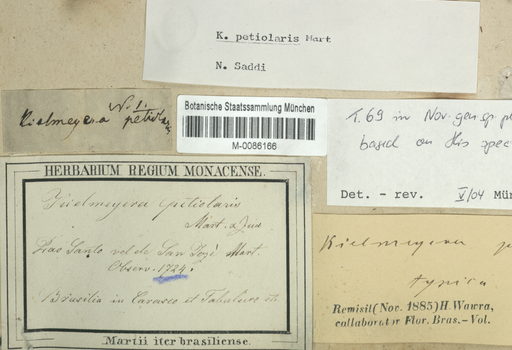 K. petiolaris Mart
N. Saddi
No. 1.
Kielmeyera petiolaris
Botanische Staatssammlung München
M-0086166
T. 69 in Nov. gen. sp. pl
based on this spec
Det. - rev. V/04 Mün
HERBARIUM REGIUM MONACENSE.
Kielmeyera petiolaris
Mart. & Zucc
San José Mart.
Observ. 1724.
Brasilia in Campis et Taboleiro
Martii iter brasiliense.
Kielmeyera p
typica
Remisit (Nov. 1885) H. Wawra,
collaborator Flor. Bras.-Vol.